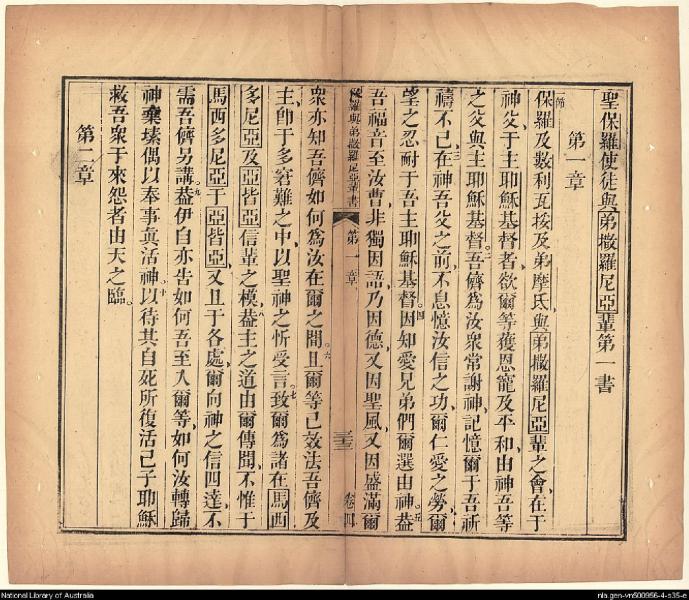 聖保羅使徒與弟撒羅尼亞輩第一書
第一章
一節保羅及數利瓦挨及弟摩氏與弟撒羅尼亞輩之會在于
神父于主耶穌基督者欲爾等獲恩寵及平和由神吾等
之父與主耶穌基督。二吾儕為汝衆常謝神記憶爾于吾祈
禱不已、三在神吾父之前不息憶汝信之功爾仁愛之勞爾
望之忍耐于吾主耶穌基督。四因知愛兄弟們爾選由神。五蓋
吾福音至汝曹非獨因語乃因德又因聖風又因盛滿爾
使羅與弟撒羅尼亞輩書 第一章 三十三 卷四
衆亦知吾儕如何為汝在爾之間。六且爾等已效法吾儕及
主、卽于多窘難之中、以聖神之忻受言。七致爾為諸在馬西
多尼亞及亞皆亞信輩之模。八蓋主之道由爾傳聞不惟于
馬西多尼亞于亞皆亞又且于各處爾向神之信四達不
需吾儕另講。九蓋伊自亦吿如何吾至入爾等、如何汝轉歸
神棄塐偶以奉事眞活神。十以待其自死所復活己子耶穌
救吾衆于來怨者由天之臨。
第二章
National Library of Australia
nla.gen-vn500956-4-s35-e